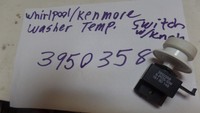 Whirlpool/Kenmore
Washer Temp. Switch
w/Knob
3950358